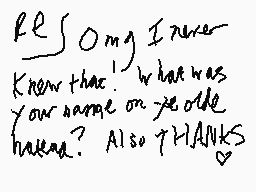 Re Omg I never
Knew that! What was
your name on ye olde
hatena? Also THANKS